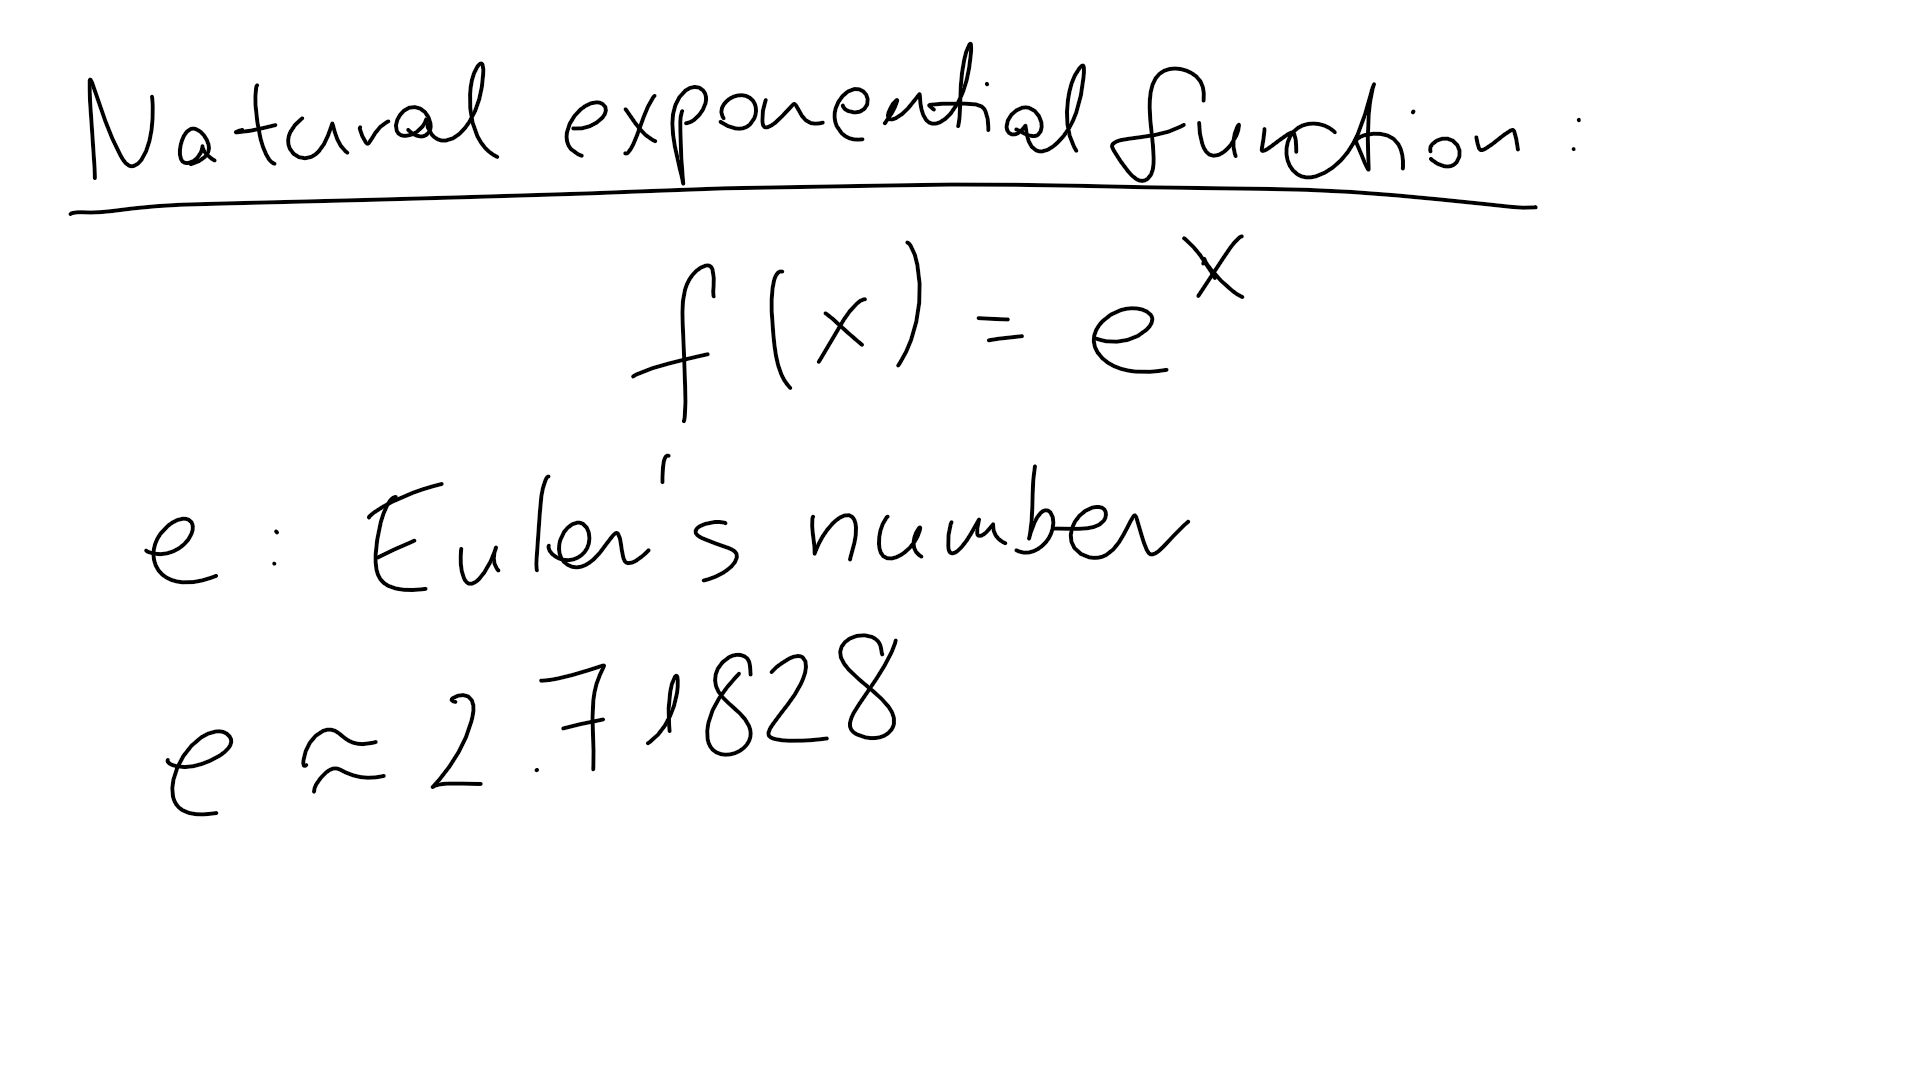 Natural exponential function:
f(x) = e^x
e: Euler's number
e ≈ 2.71828